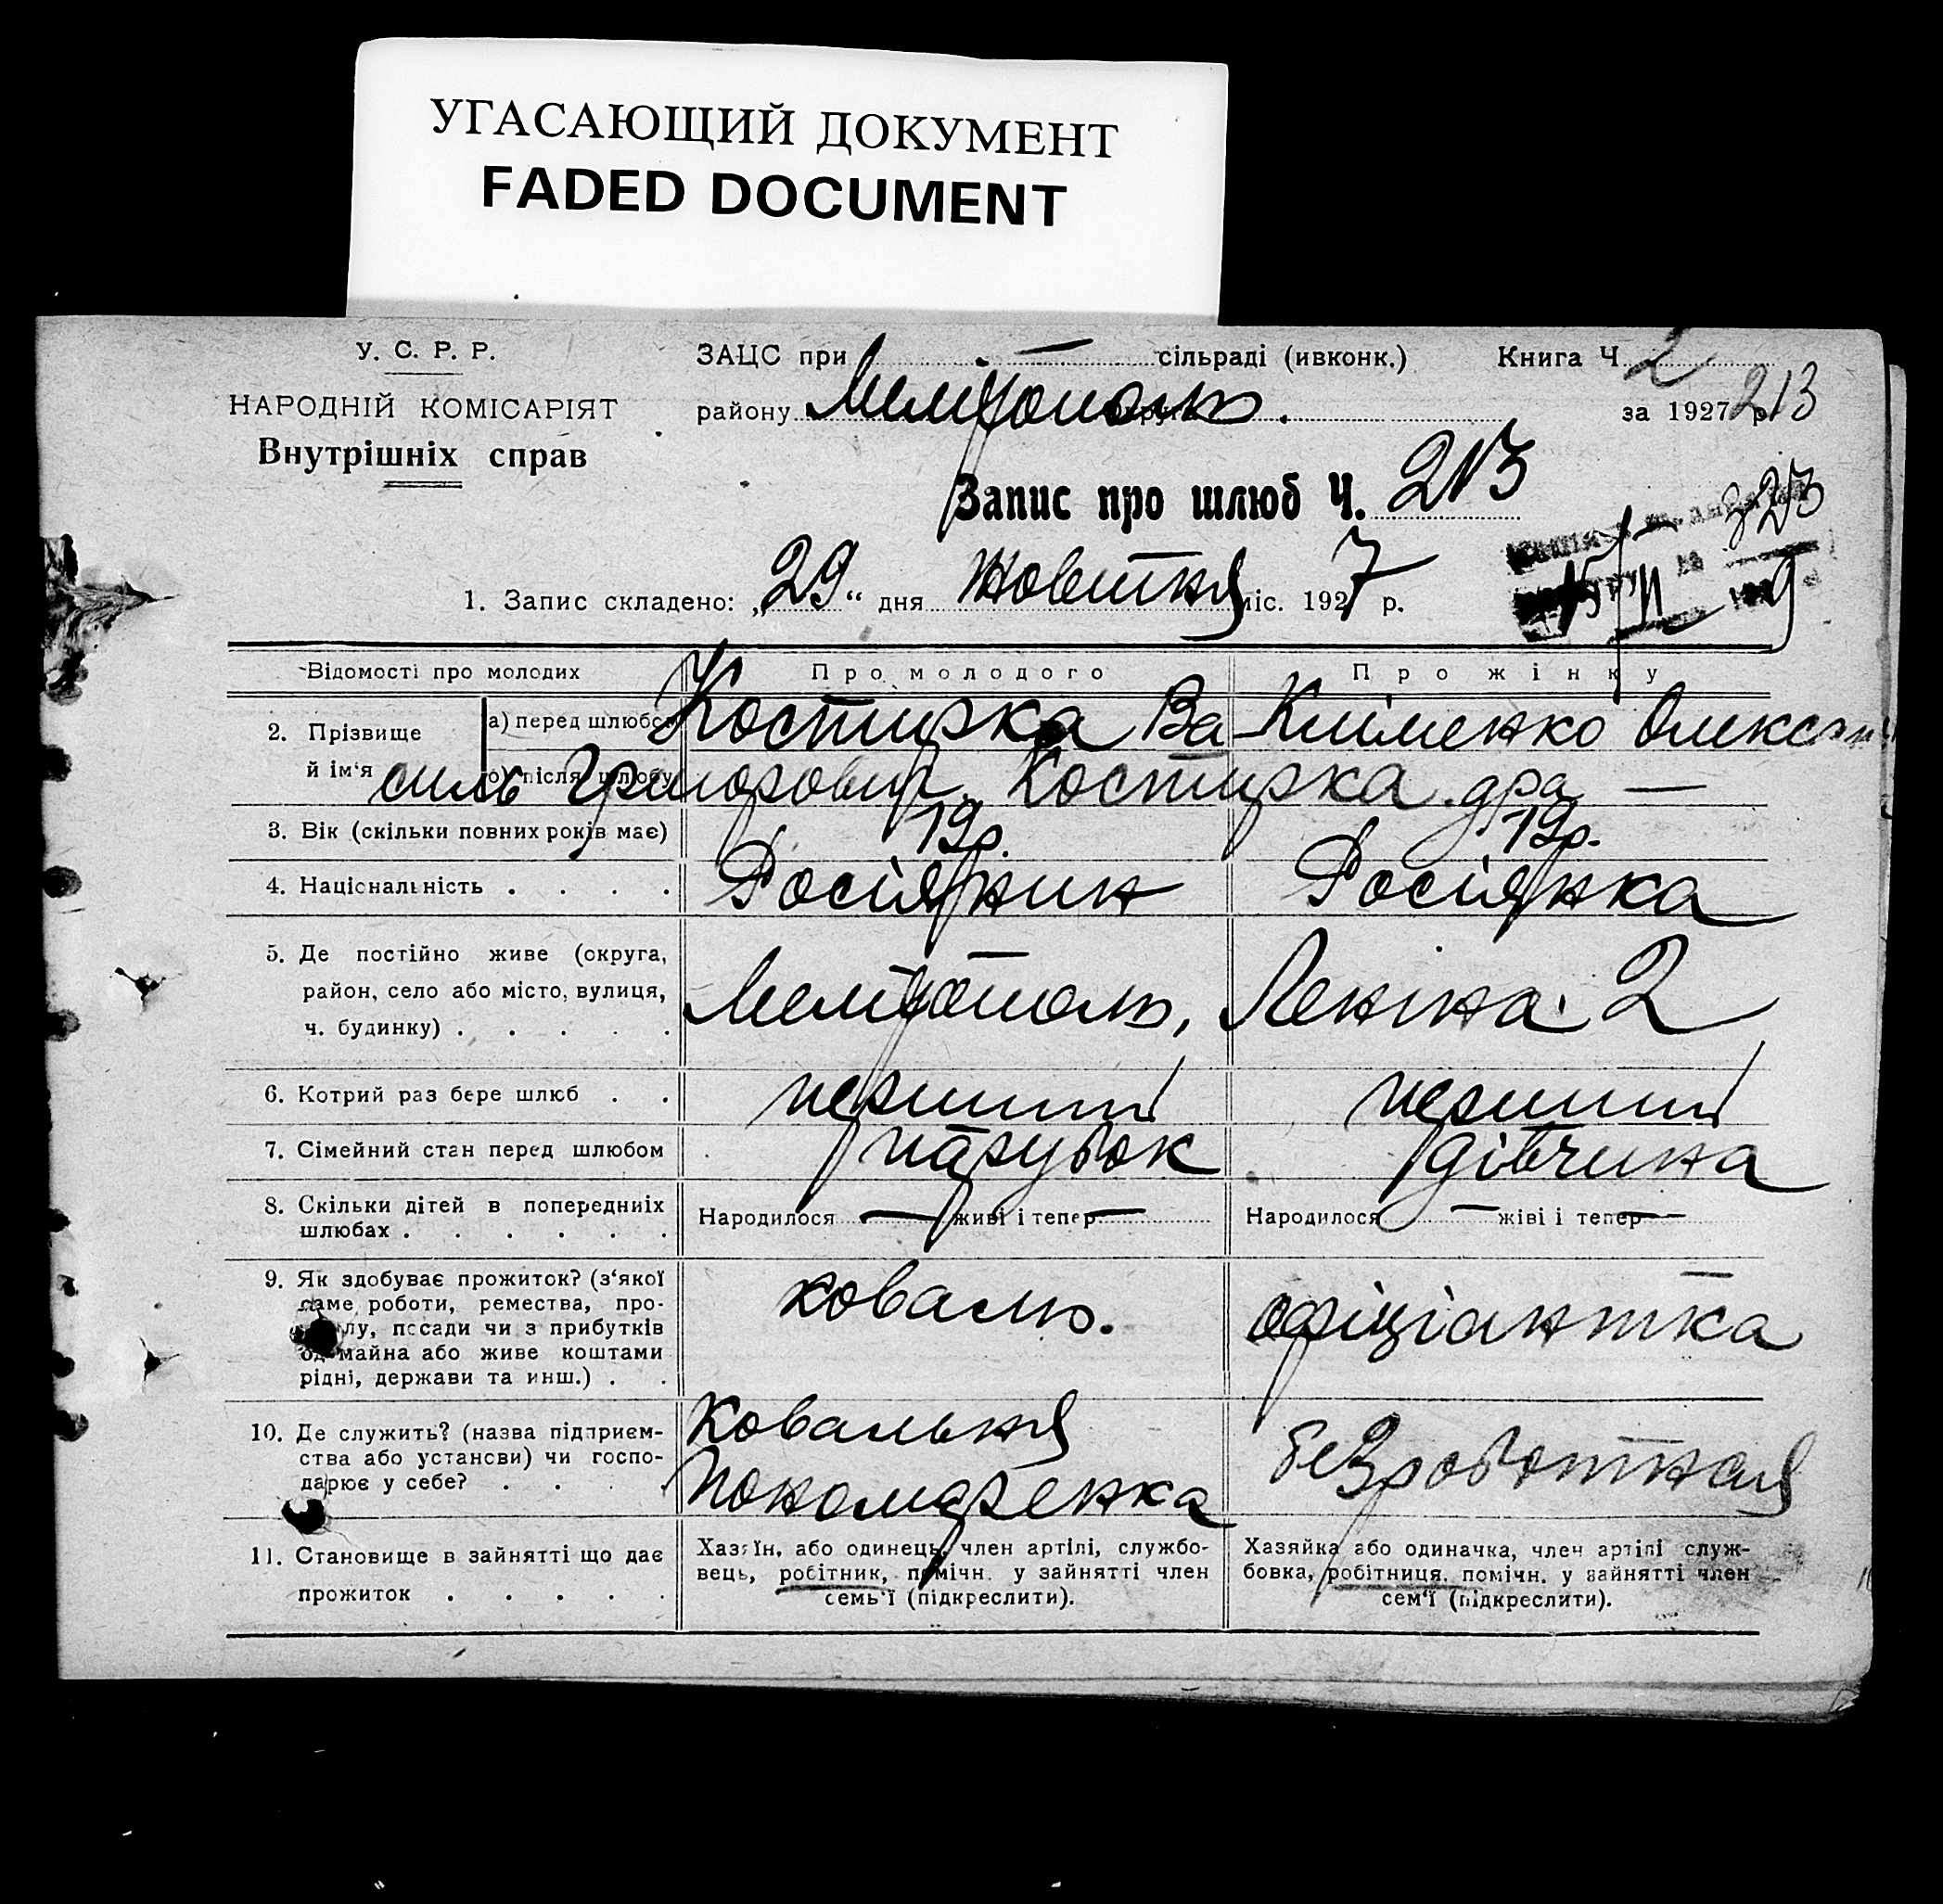 УГАСАЮЩИЙ ДОКУМЕНТ
FADED DOCUMENT
У. С. Р. Р.
НАРОДНІЙ КОМІСАРІЯТ
Внутрішніх справ
ЗАЦС при — сільраді (ивконк.)
Книга Ч. 2
району Мелітополь.
за 1927 р. 213
Запис про шлюб Ч. 213
213
15/II 9
1. Запис складено: „29“ дня Жовтня міс. 1927 р.
Відомості про молодих
Про молодого
Про жінку
2. Прізвище й ім'я
а) перед шлюбом
Костирка Ва-
Кліменко Олексан
б) після шлюбу
силь Григорович. Костирка дра —
3. Вік (скільки повних років має)
19 р.
19 р.
4. Національність . . . .
Росіянин
Росіянка
5. Де постійно живе (округа,
район, село або місто, вулиця,
ч. будинку) . . . . .
Мелітополь, Леніна 2
6. Котрий раз бере шлюб . .
перший
перший
7. Сімейний стан перед шлюбом
парубок
дівчина
8. Скільки дітей в попередніх
шлюбах . . . . . .
Народилося — живі і тепер —
Народилося — жіві і тепер —
9. Як здобуває прожиток? (з'якої
саме роботи, ремества, про-
лу, посади чи з прибутків
од майна або живе коштами
рідні, держави та инш.) . .
коваль.
офіціантка
10. Де служить? (назва підприєм-
ства або установи) чи госпо-
дарює у себе? . . . .
Ковальня
Пономаренка
безработная
11. Становище в зайнятті що дає
прожиток . . . . .
Хазяїн, або одинець, член артілі, службо-
вець, робітник, помічн. у зайнятті член
семь'ї (підкреслити).
Хазяйка або одиначка, член артілі служ-
бовка, робітниця, помічн. у зайнятті член
сем'ї (підкреслити).